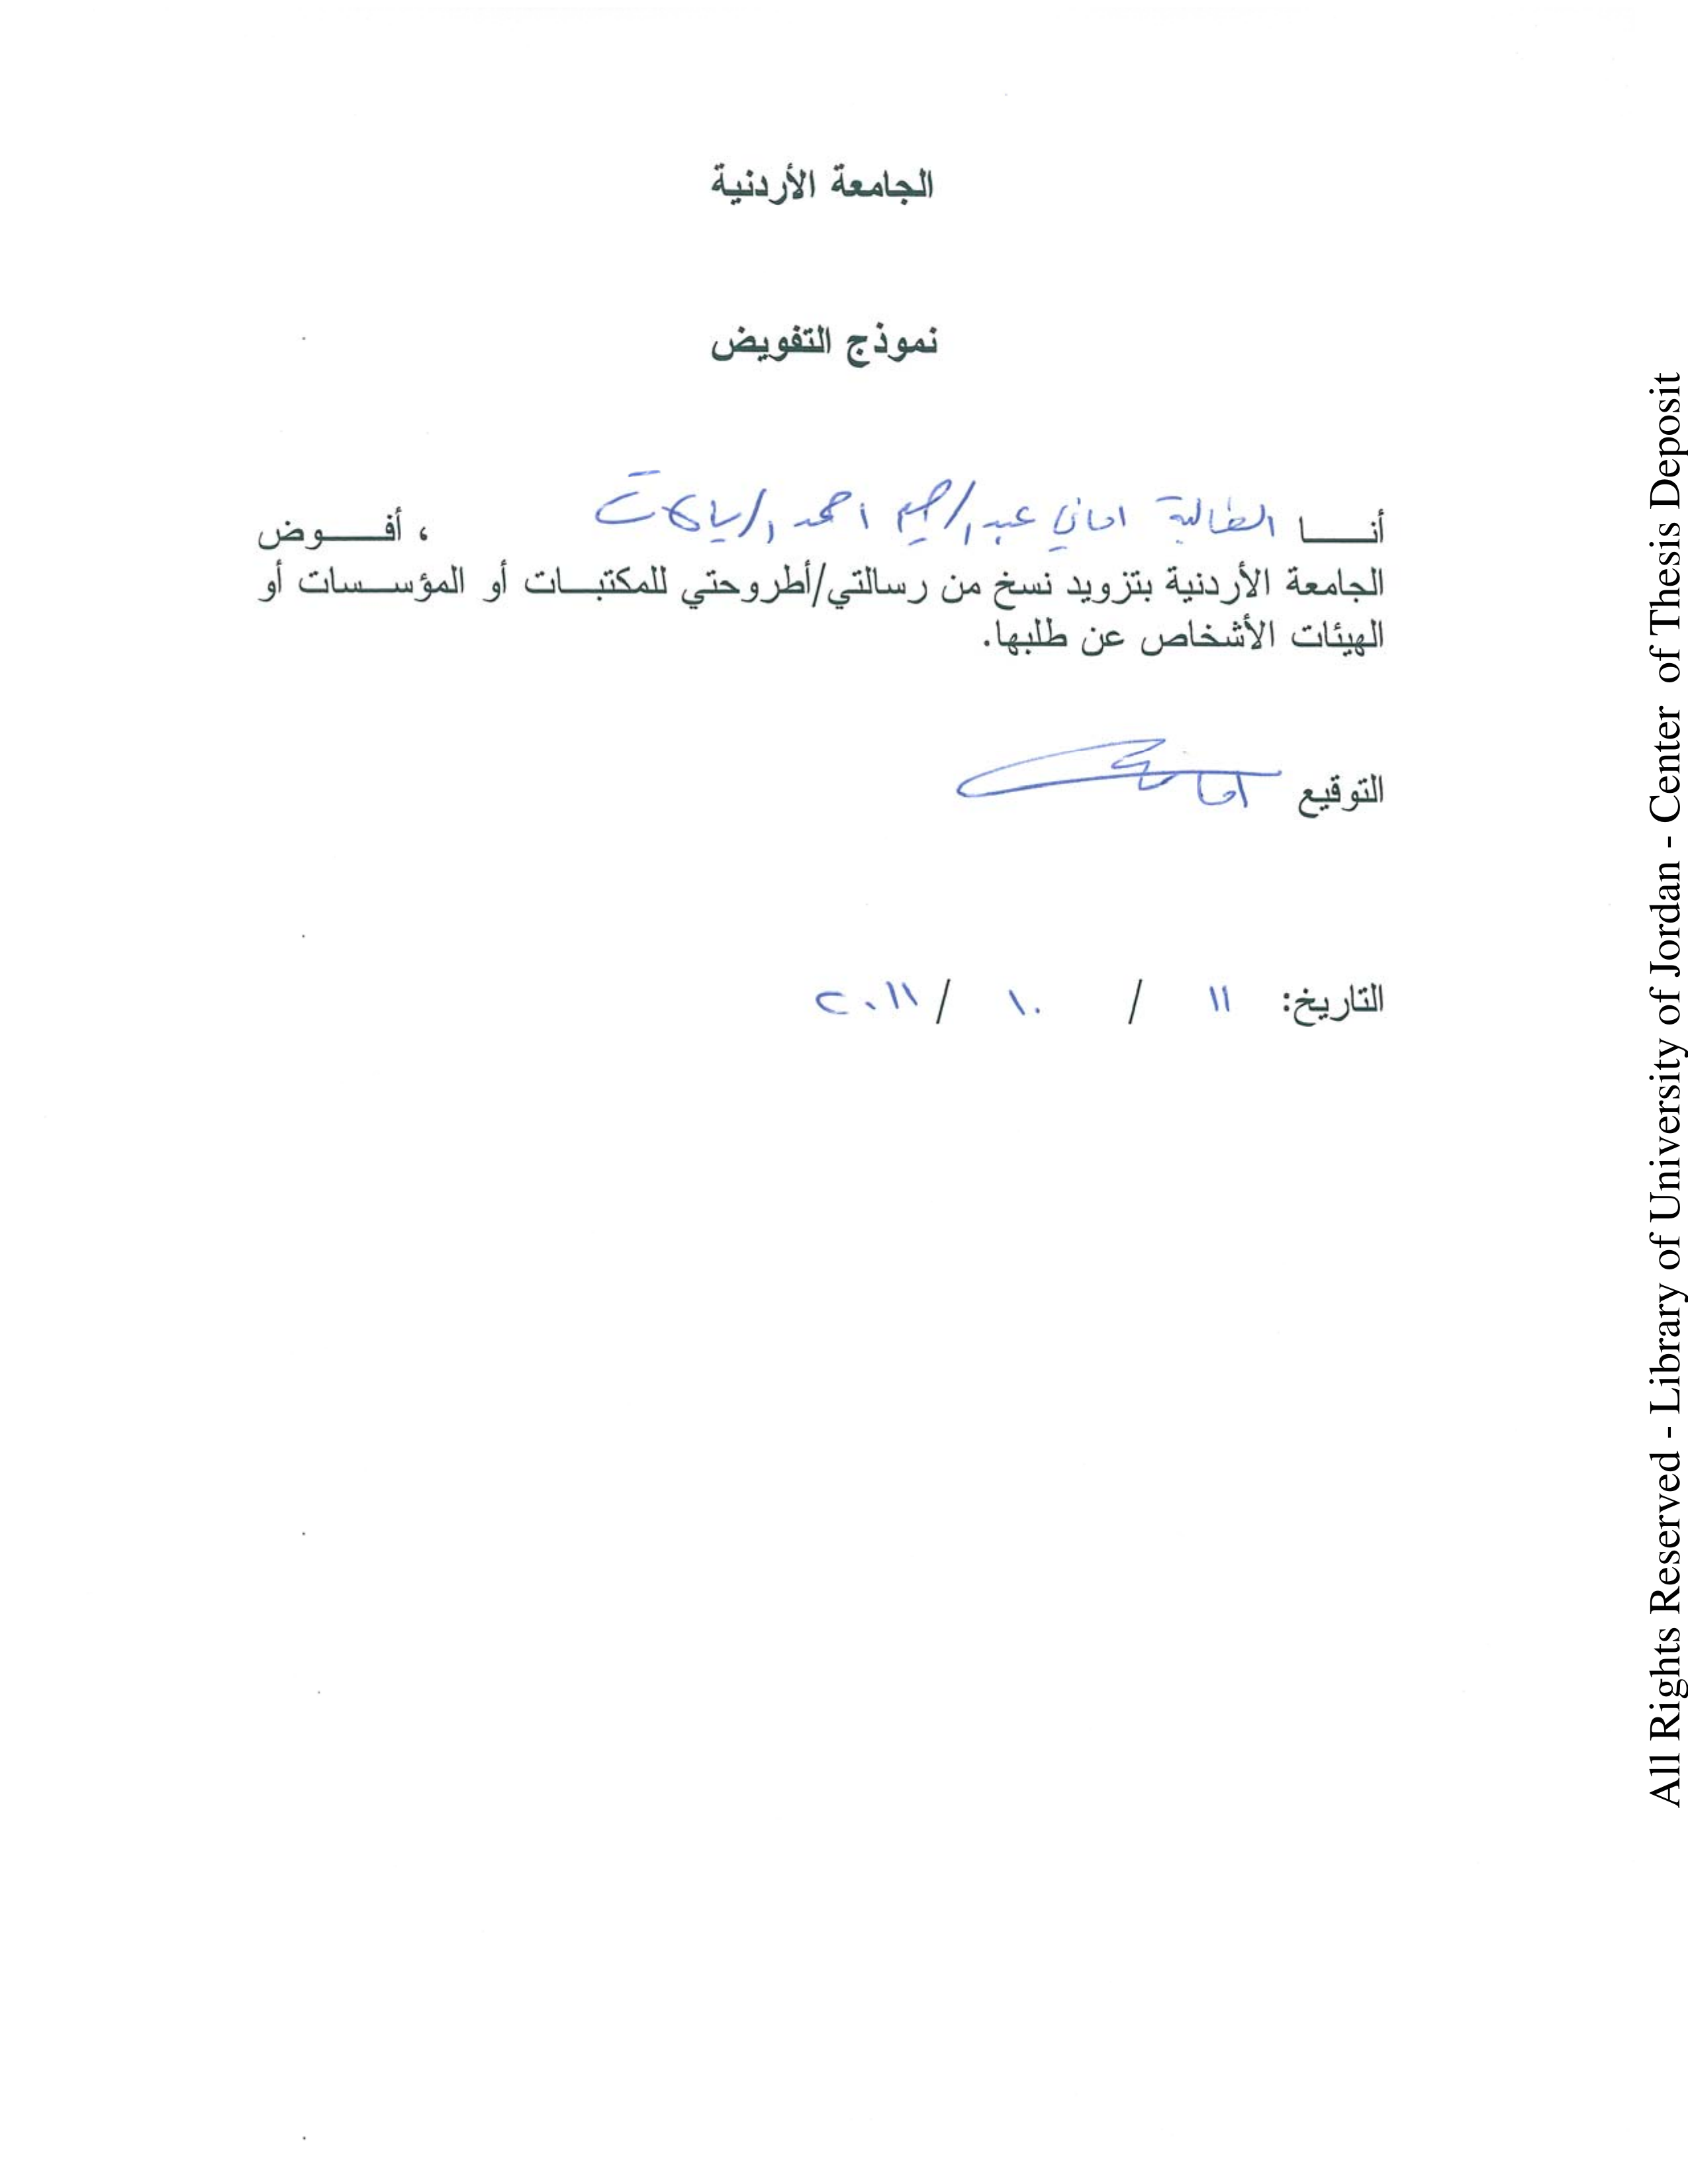 الجامعة الأردنية
نموذج التفويض
أنا الطالبة اماني عبدالرحيم احمد ، أفوض
الجامعة الأردنية بتزويد نسخ من رسالتي/أطروحتي للمكتبات أو المؤسسات أو
الهيئات الأشخاص عن طلبها.
التوقيع
التاريخ: ١١ / ١٠ / ٢٠١١
All Rights Reserved - Library of University of Jordan - Center of Thesis Deposit